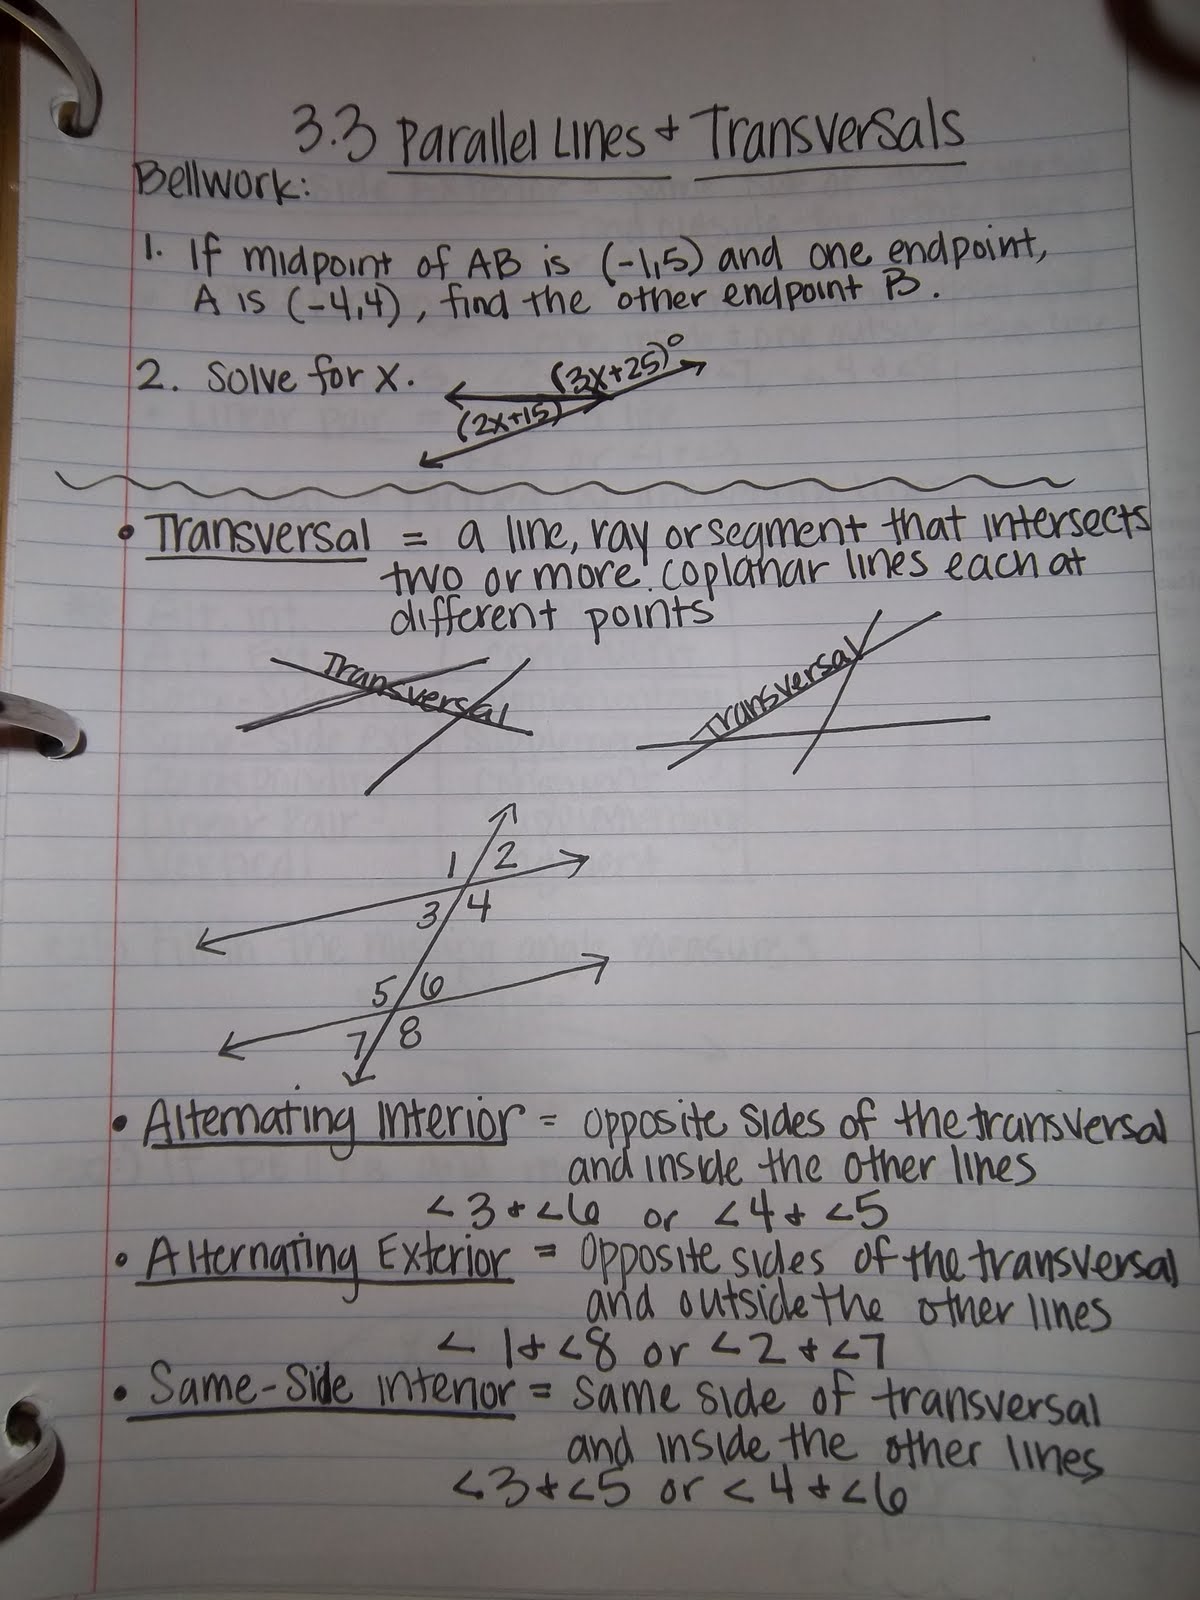 3.3 Parallel Lines + Transversals
Bellwork:
1. If midpoint of AB is (-1,5) and one endpoint,
A is (-4,4), find the other endpoint B.
2. Solve for x.
(3x+25)°
(2x+15)
• Transversal = a line, ray or segment that intersects
two or more coplanar lines each at
different points
Transversal
Transversal
1 2
3 4
5 6
7 8
• Alternating Interior = opposite sides of the transversal
and inside the other lines
<3 + <6 or <4 + <5
• Alternating Exterior = Opposite sides of the transversal
and outside the other lines
<1 + <8 or <2 + <7
• Same-Side interior = same side of transversal
and inside the other lines
<3 + <5 or <4 + <6